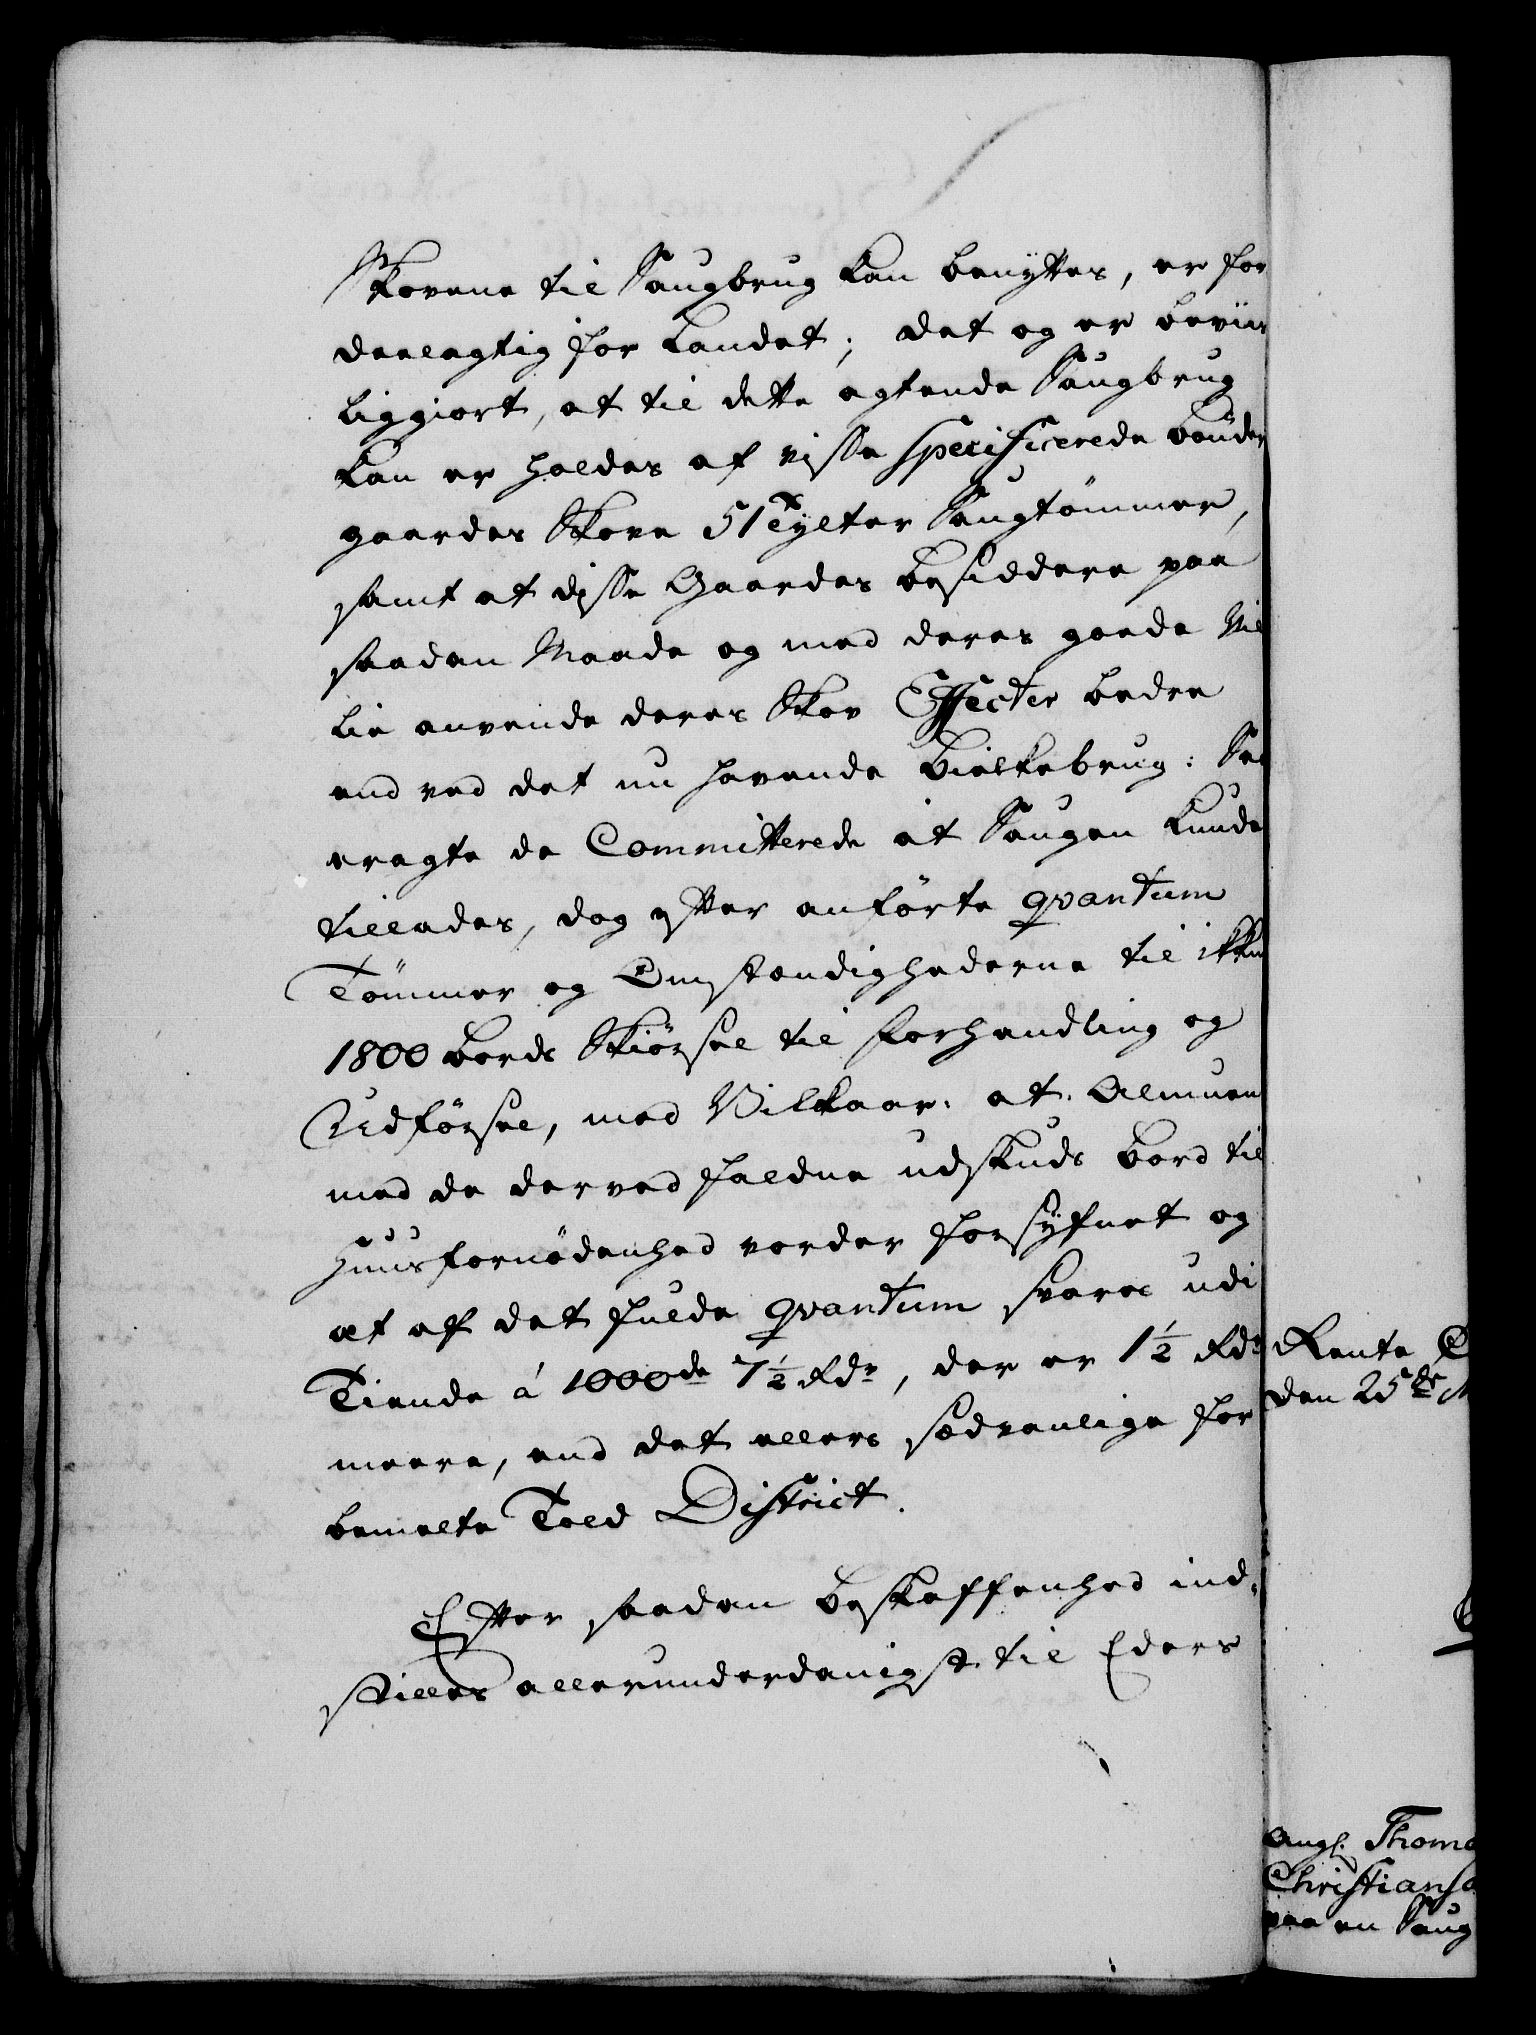 Skovene til Saugbrug kan benyttes, er for
deelagtig for Landet; det og er beviis
liggiort, at til dette agtende Saugbrug
kan er holdes af visse specificerede bønder
gaardes Skove 51 Tylter Saugtømmer,
samt at disse Gaardes besiddere paa
saadan Maade og med deres goede Vil
lie anvende deres Skov Effecter bedre
end ved det nu havende Bielkebrug: Saa
eragte de Committerede at Saugen kunde
tillades, dog efter anførte qvantum
Tømmer og Omstændighederne til ikkun
1800 bords Skiørsel til forhandling og
Udførsel, med Vilkaar: at Almuen
med de derved faldne udskuds bord til
huusfornødenhed vorder forsÿfnet og
at af det fulde qvantum svares udi
Tiende á 1000de 7½ Rdr, der er 1½ Rdr
meere, end det ellers sædvanlige for
bemelte Told District.
Efter saadan beskaffenhed ind-
stilles allerunderdanigst til Eders
Rente
den 25de
Ang: Thoma
Christians
paa en Saug